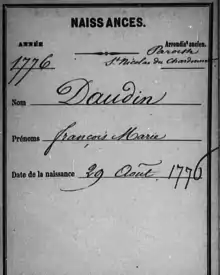 NAISSANCES.
ANNÉE Arrondt ancien.
Paroisse
1776 St Nicolas du Chardonnet
Nom Daudin
Prénoms françois Marie
Date de la naissance 29 Août 1776